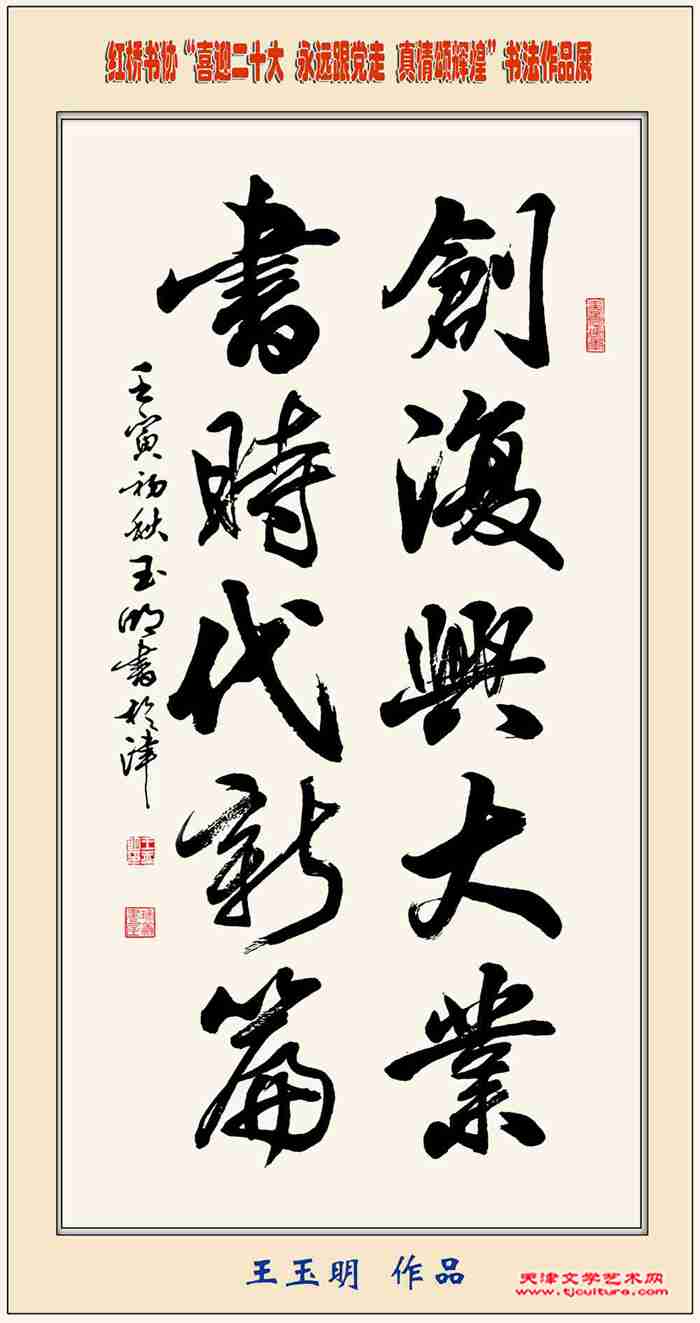 红桥书协“喜迎二十大 永远跟党走 真情颂辉煌”书法作品展
創復興大業
書時代新篇
壬寅初秋玉明書於津
王玉明 作品
天津文学艺术网
www.tjculture.com